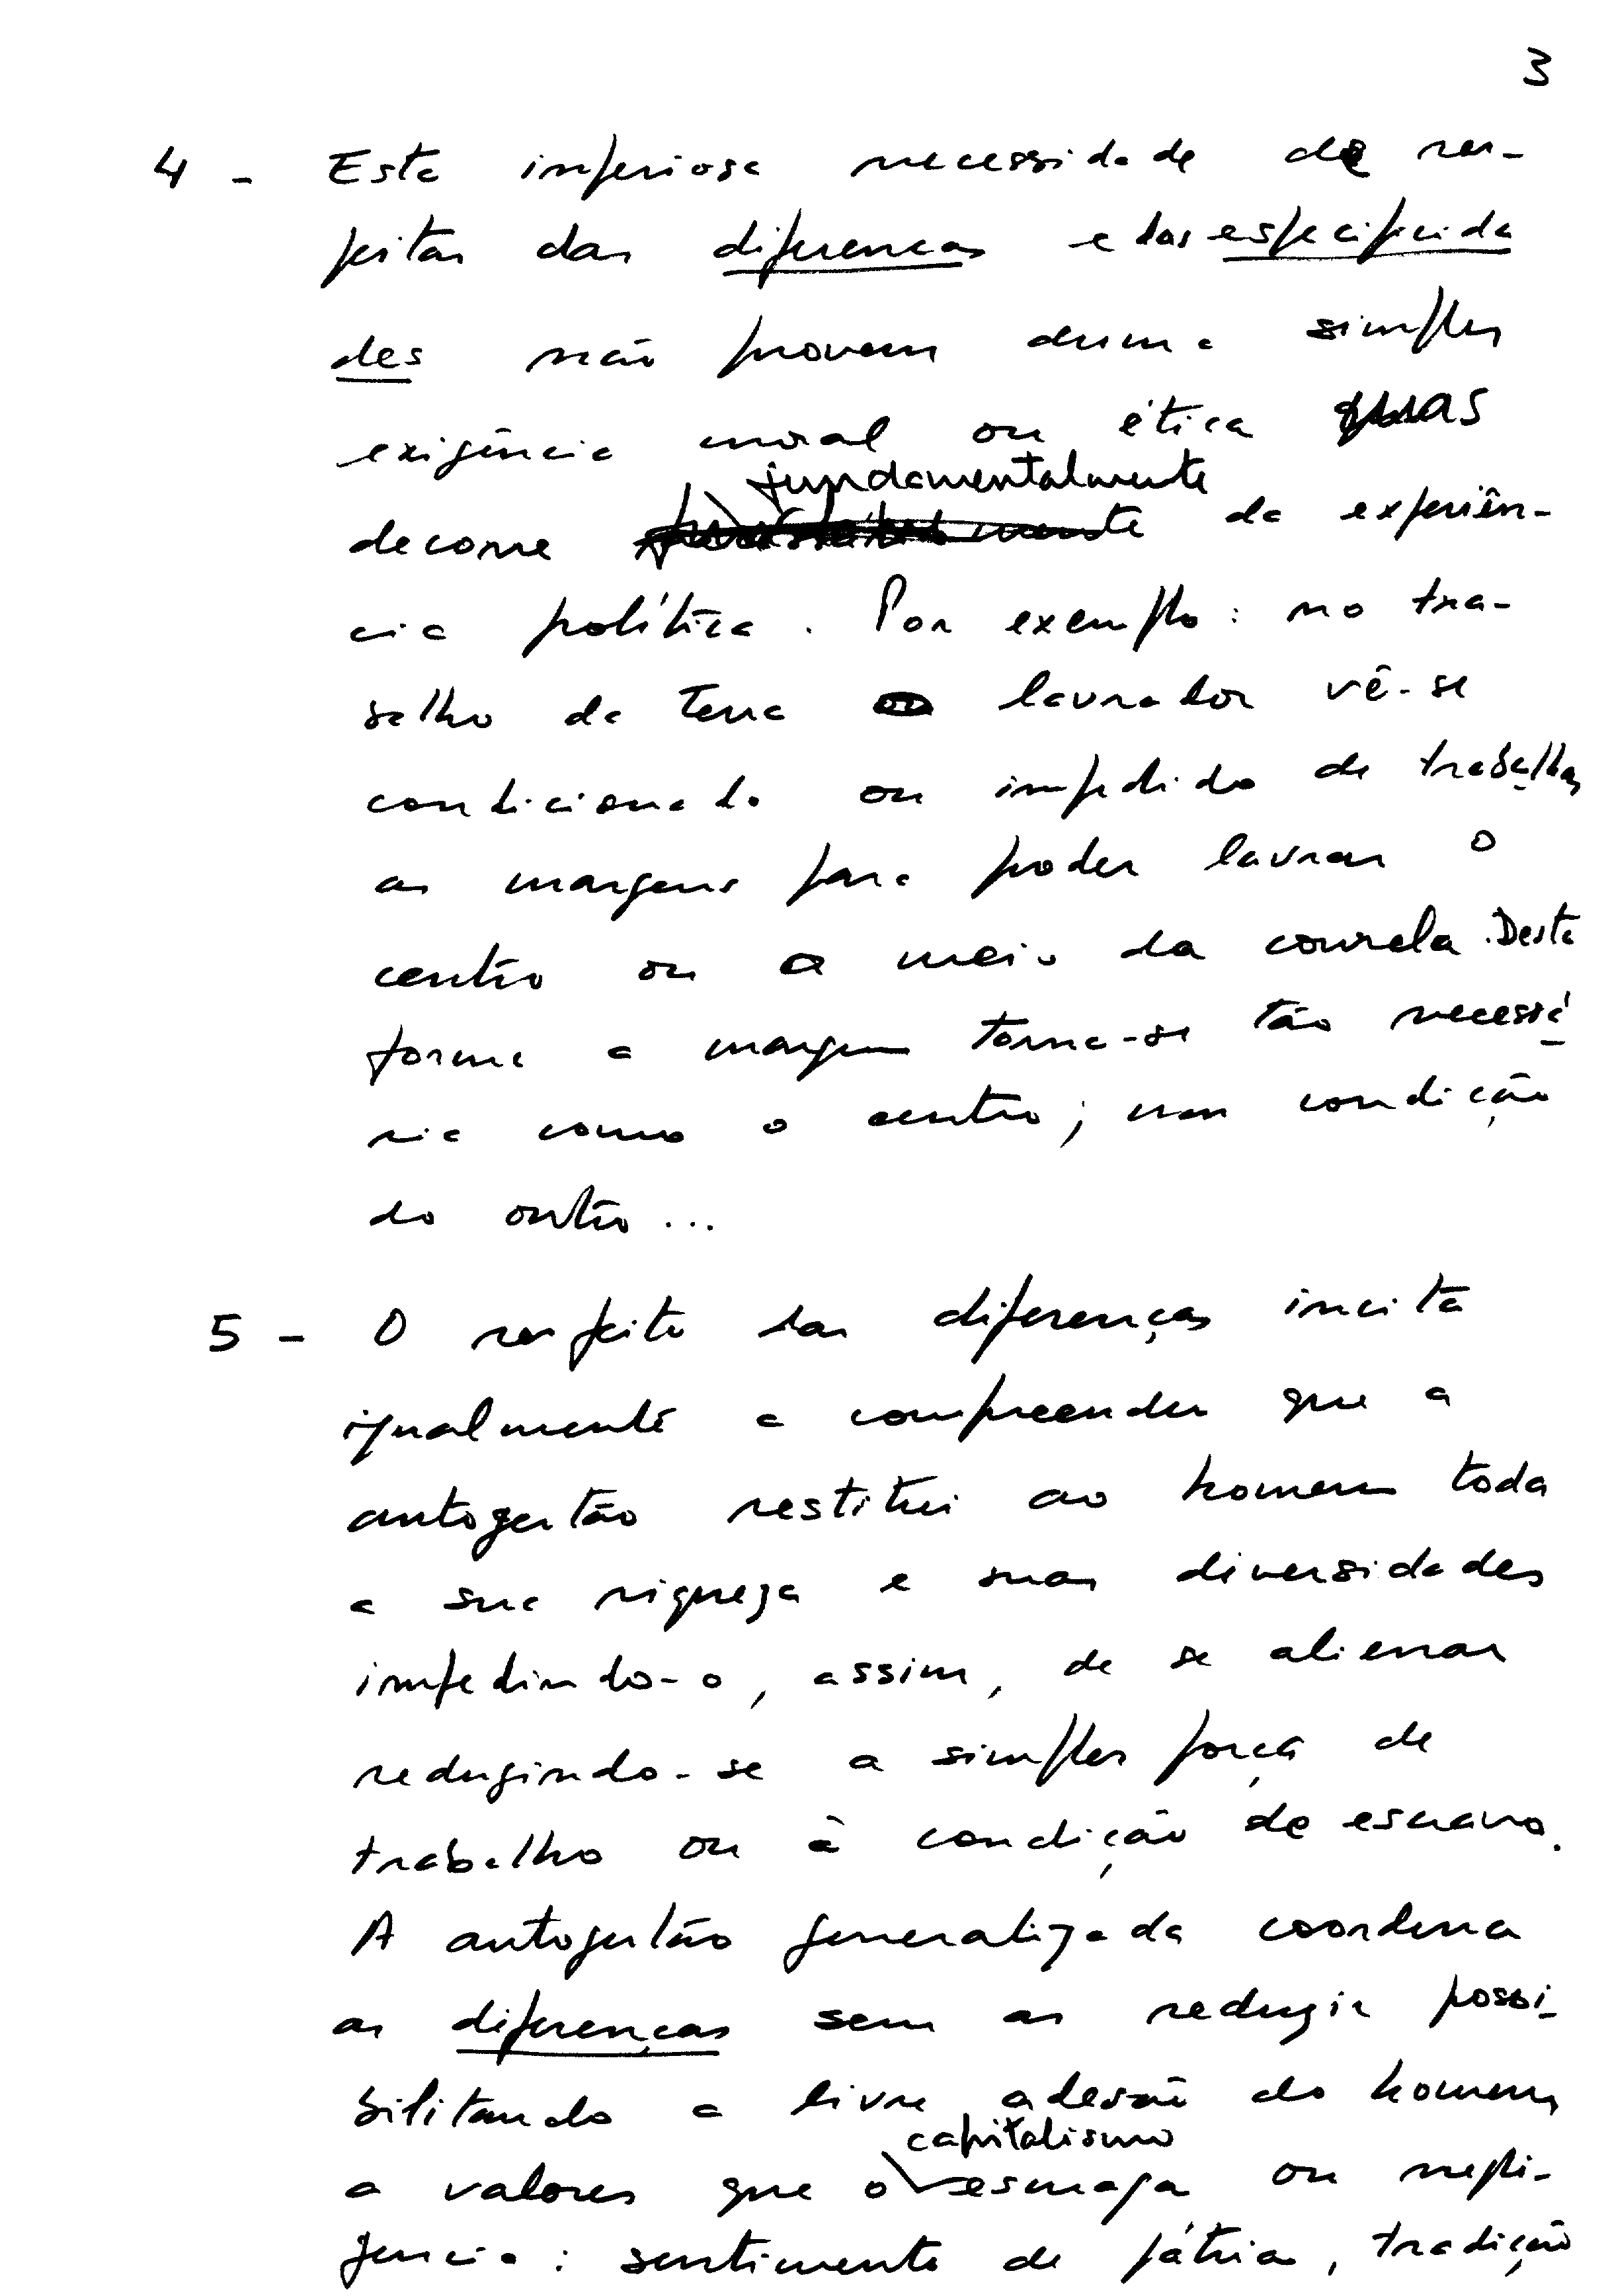 3
4 - Esta imperiosa necessidade de res-
peitar das diferenças e das especificida
des não provem duma simples
exigência moral ou ética mas
fundamentalmente
decorre da experiên-
cia política. Por exemplo: no tra-
balho da terra o lavrador vê-se
condicionado ou impedido de trabalhar
as margens para poder lavrar o
centro ou o meio da courela. Desta
forma a margem torna-se tão necessá
ria como o centro; um condição
do outro...
5 - O respeito das diferenças incita
igualmente a compreender que a
autogestão restitui ao homem toda
a sua riqueza e suas diversidades
impedindo-o, assim, de se alienar
reduzindo-se a simples força de
trabalho ou à condição de escravo.
A autogestão generalizada coordena
as diferenças sem as reduzir possi-
bilitando a livre adesão do homem
capitalismo
a valores que o esmaga ou negli-
gencia: sentimento de pátria, tradição